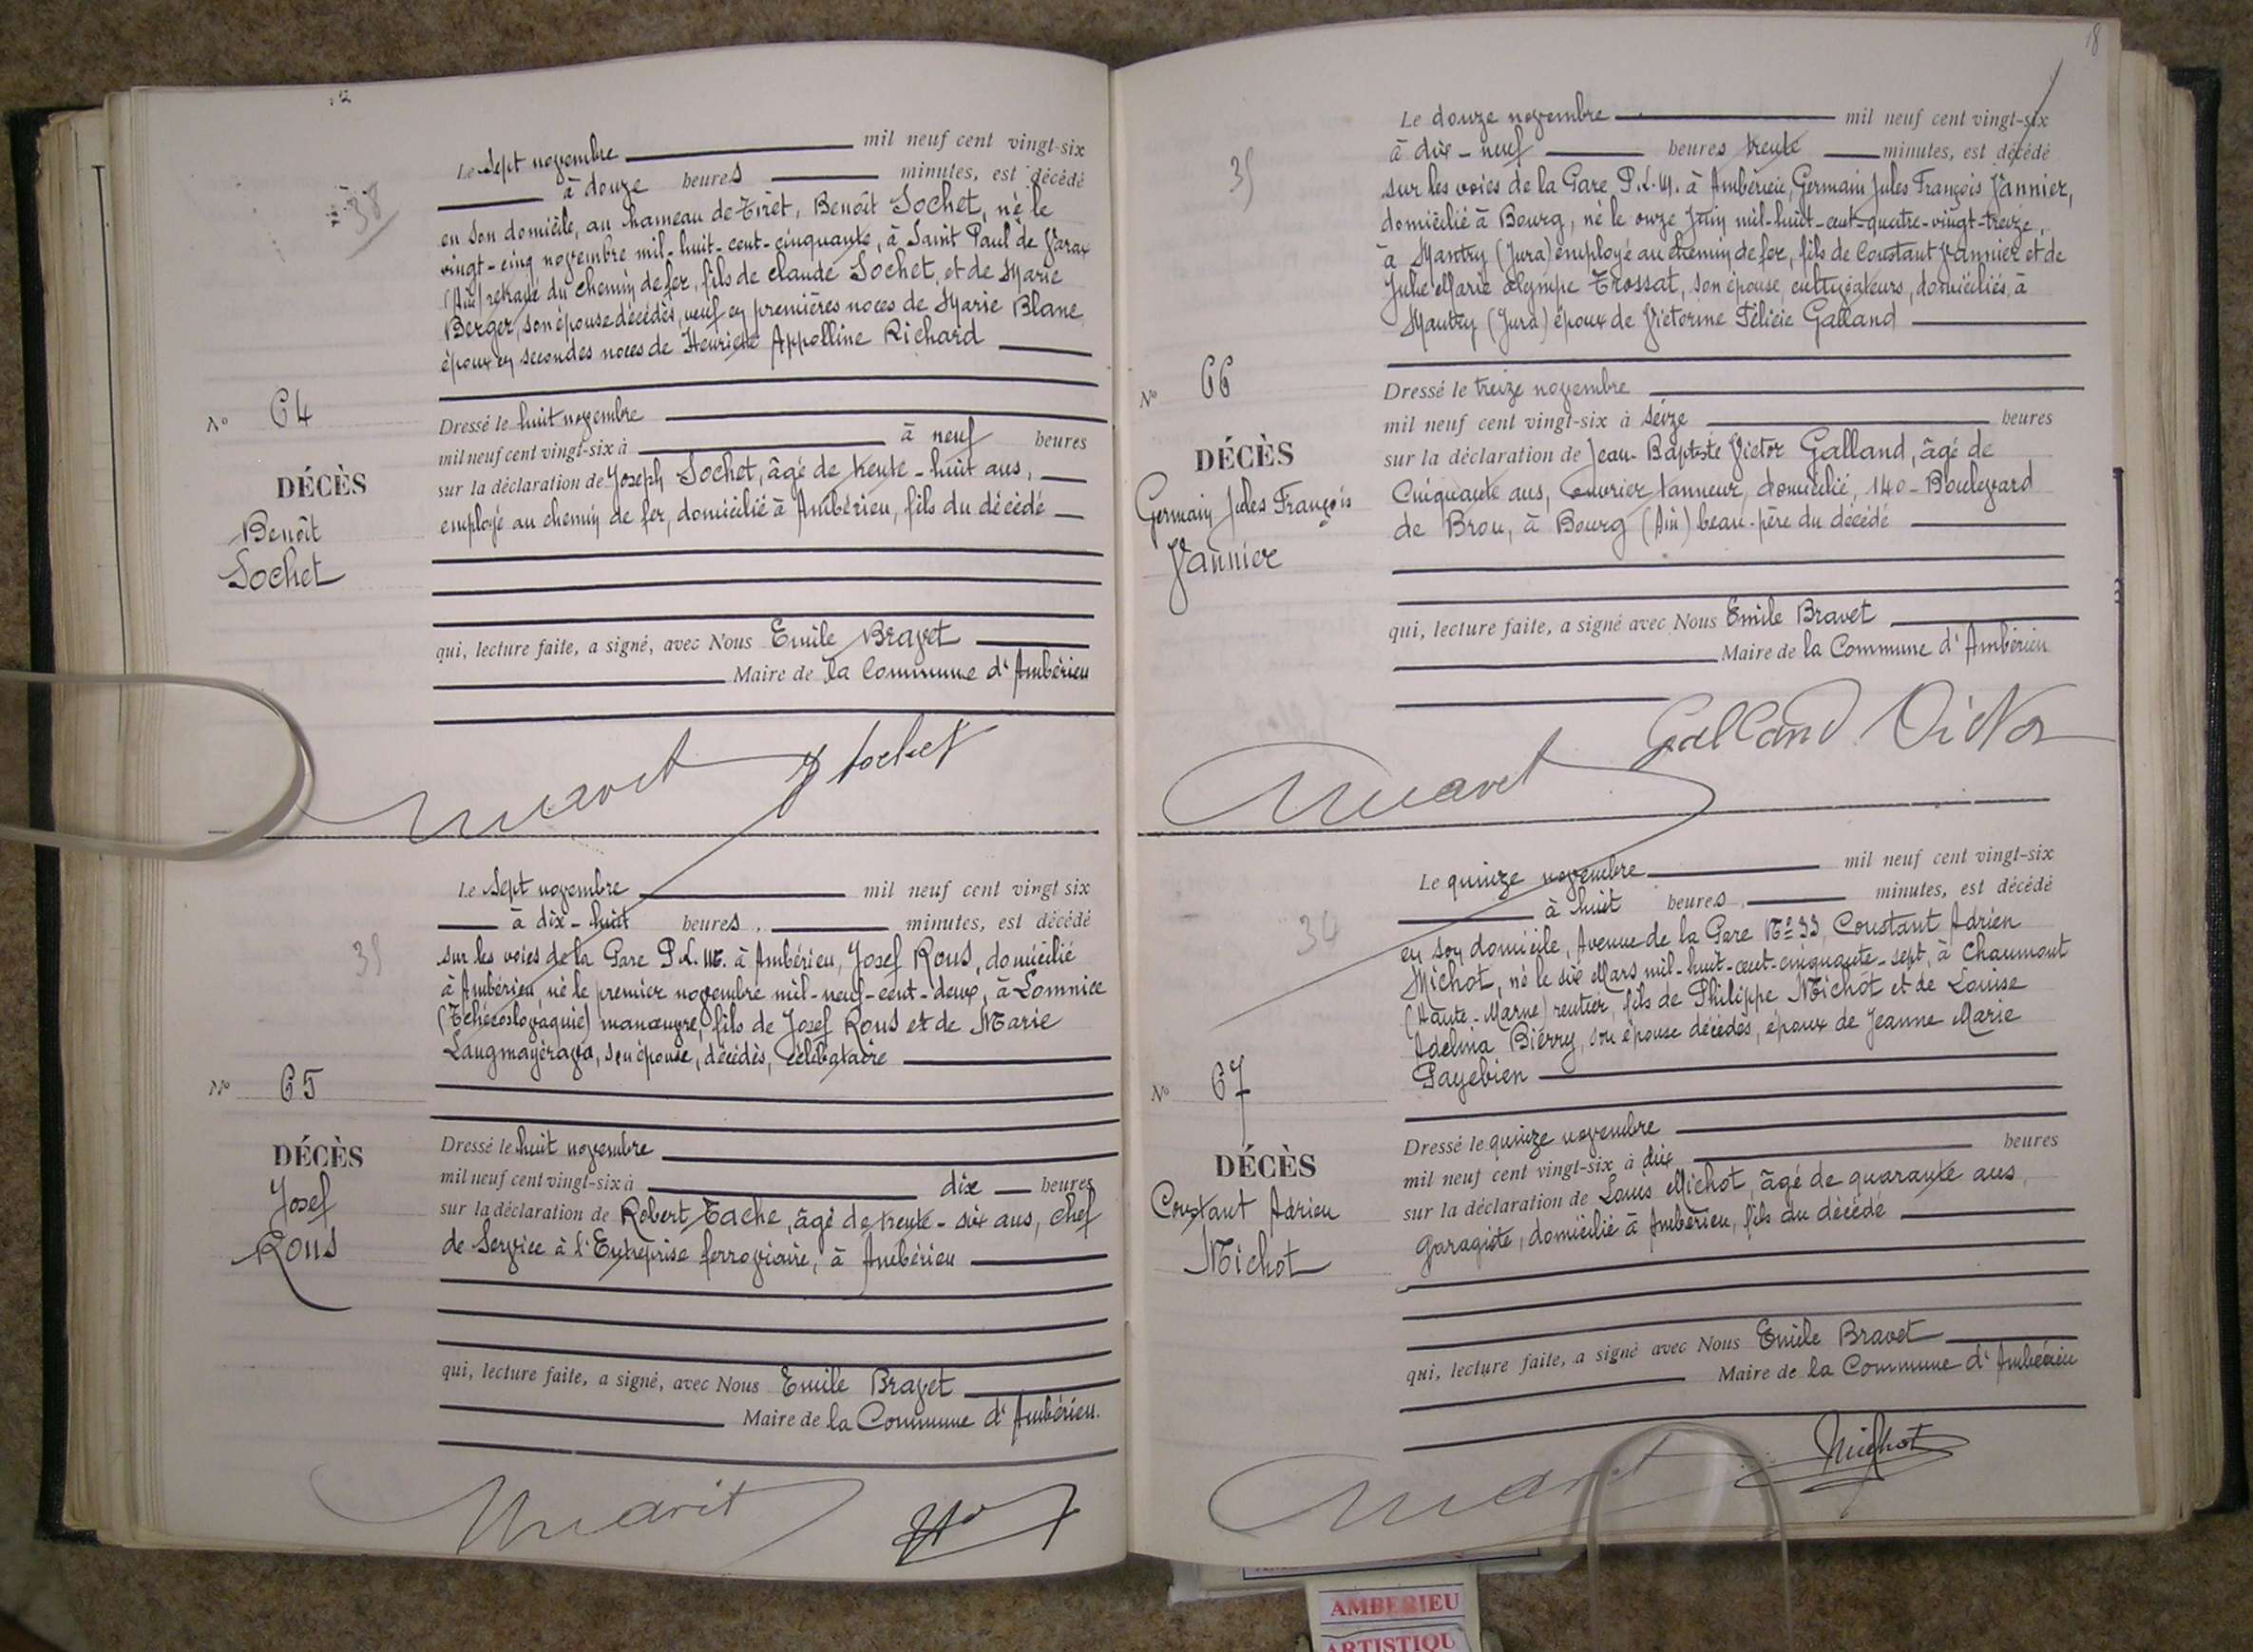 38
Le Sept novembre mil neuf cent vingt-six
à douze heures minutes, est décédé
en son domicile, au hameau de Tiret, Benoît Sochet, né le
vingt-cinq novembre mil-huit-cent-cinquante, à Saint Paul de Varax
(Ain) retraité du chemin de fer, fils de Claude Sochet, et de Marie
Berger, son épouse décédés, veuf en premières noces de Marie Blanc
époux en secondes noces de Henriette Appolline Richard
No 64
DÉCÈS
Benoît
Sochet
Dressé le huit novembre
mil neuf cent vingt-six à à neuf heures
sur la déclaration de Joseph Sochet, âgé de trente-huit ans,
employé au chemin de fer, domicilié à Ambérieu, fils du décédé
qui, lecture faite, a signé, avec Nous Emile Bravet
Maire de la Commune d'Ambérieu
Bravet J Sochet
Le Sept novembre mil neuf cent vingt six
à dix-huit heures minutes, est décédé
sur les voies de la Gare P.L.M. à Ambérieu, Josef Rous, domicilié
à Ambérieu, né le premier novembre mil-neuf-cent-deux, à Lomnice
(Tchécoslovaquie) manœuvre, fils de Josef Rous et de Marie
Langmayérava, son épouse, décédés, célibataire
No 65
DÉCÈS
Josef
Rous
Dressé le huit novembre
mil neuf cent vingt-six à dix heures
sur la déclaration de Robert Tache, âgé de trente-six ans, chef
de Service à l'Entreprise ferroviaire, à Ambérieu
qui, lecture faite, a signé, avec Nous Emile Bravet
Maire de la Commune d'Ambérieu.
Bravet
18
Le douze novembre mil neuf cent vingt-six
à dix-neuf heures trente minutes, est décédé
sur les voies de la Gare P.L.M. à Ambérieu, Germain Jules François Vannier,
domicilié à Bourg, né le onze Juin mil-huit-cent-quatre-vingt-treize,
à Mantry (Jura) employé au chemin de fer, fils de Constant Vannier et de
Julie Marie Olympe Trossat, son épouse, cultivateurs, domiciliés à
Mantry (Jura) époux de Victorine Félicie Galland
No 66
DÉCÈS
Germain Jules François
Vannier
Dressé le treize novembre
mil neuf cent vingt-six à seize heures
sur la déclaration de Jean-Baptiste Victor Galland, âgé de
Cinquante ans, Ouvrier tanneur, domicilié, 140-Boulevard
de Brou, à Bourg (Ain) beau-père du décédé
qui, lecture faite, a signé avec Nous Emile Bravet
Maire de la Commune d'Ambérieu
Galland Victor
Bravet
Le quinze novembre mil neuf cent vingt-six
à huit heures minutes, est décédé
en son domicile, Avenue de la Gare No 33, Constant Adrien
Michot, né le six Mars mil-huit-cent-cinquante-sept, à Chaumont
(Haute-Marne) rentier, fils de Philippe Michot et de Louise
Adelina Biérry, son épouse décédés, époux de Jeanne Marie
Payebien
No 67
DÉCÈS
Constant Adrien
Michot
Dressé le quinze novembre
mil neuf cent vingt-six à dix heures
sur la déclaration de Louis Michot, âgé de quarante ans,
Garagiste, domicilié à Ambérieu, fils du décédé
qui, lecture faite, a signé avec Nous Emile Bravet
Maire de la Commune d'Ambérieu
Bravet Michot
AMBERIEU
ARTISTIQU